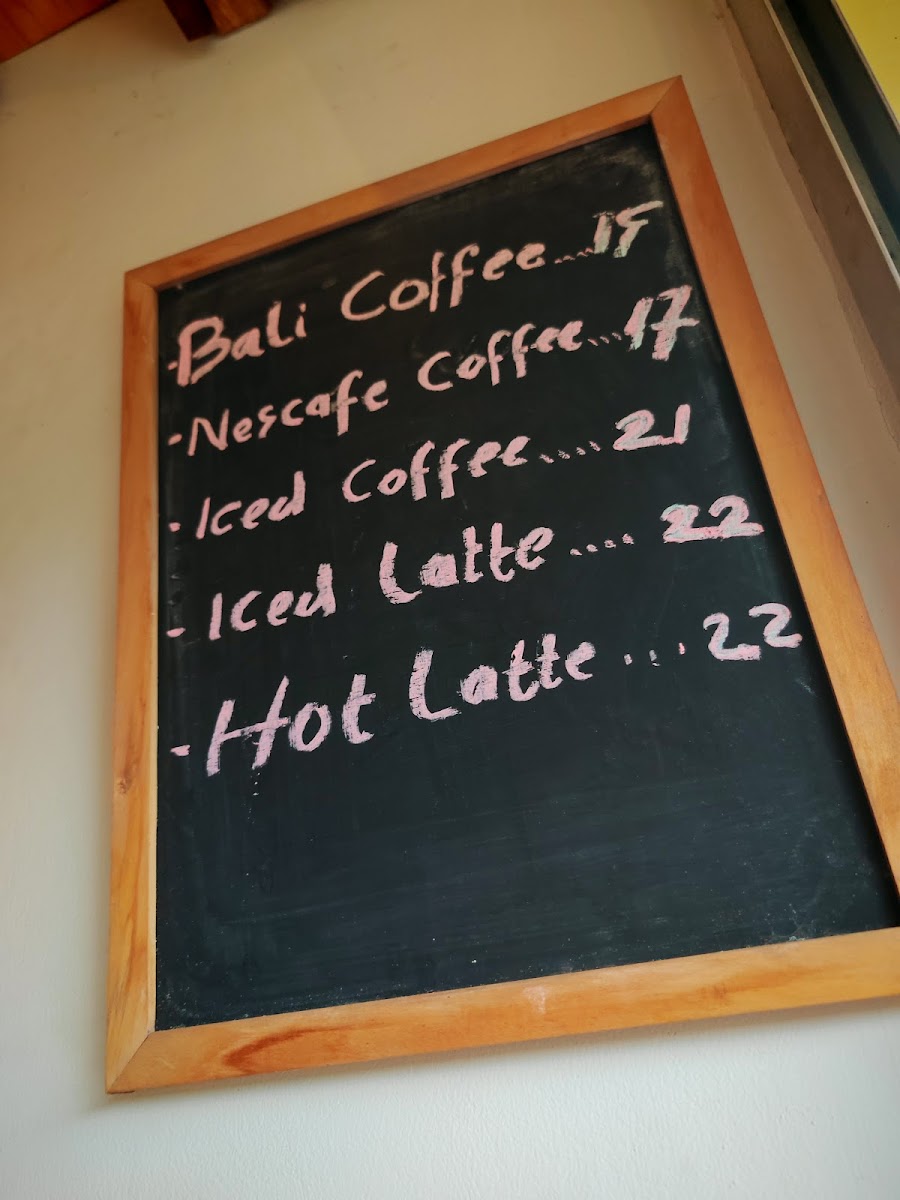 - Bali Coffee....15
- Nescafe Coffee...17
- Iced Coffee.... 21
- Iced Latte .... 22
- Hot Latte .... 22